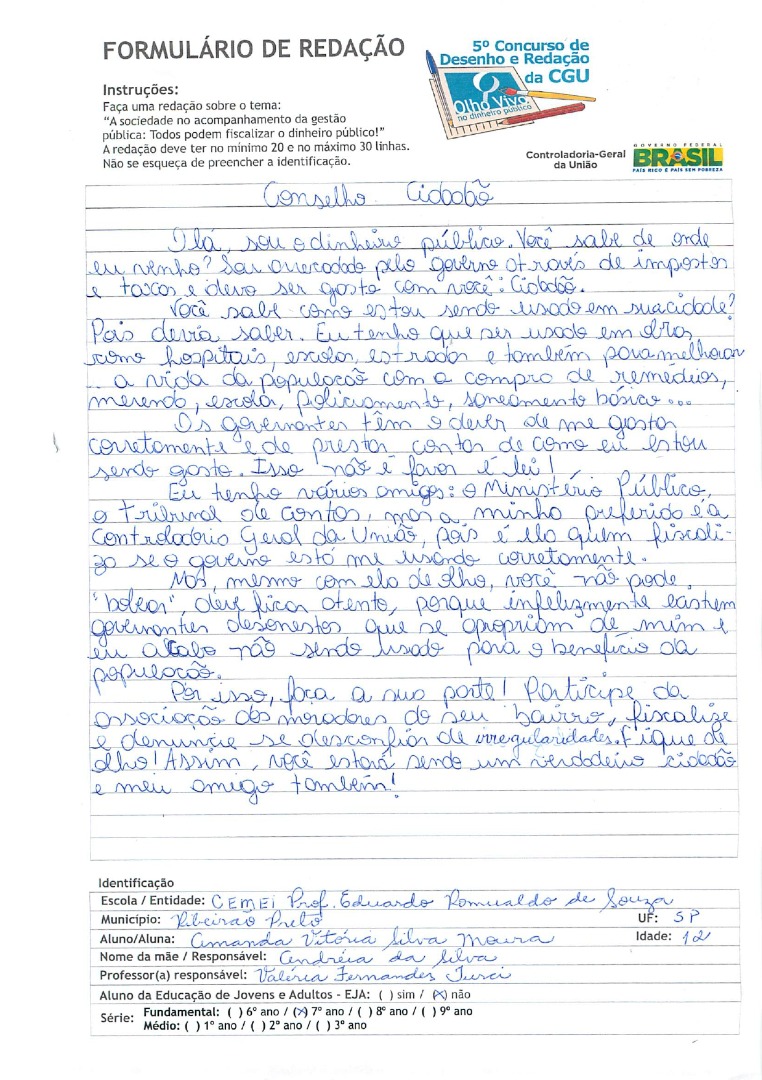 FORMULÁRIO DE REDAÇÃO
5º Concurso de
Desenho e Redação
da CGU
Olho Vivo
no dinheiro público
Instruções:
Faça uma redação sobre o tema:
“A sociedade no acompanhamento da gestão
pública: Todos podem fiscalizar o dinheiro público!”
A redação deve ter no mínimo 20 e no máximo 30 linhas.
Não se esqueça de preencher a identificação.
Controladoria-Geral
da União
GOVERNO FEDERAL
BRASIL
PAÍS RICO É PAÍS SEM POBREZA
Conselho Cidadão
Olá, sou o dinheiro público. Você sabe de onde
eu venho? Sou arrecadado pelo governo através de impostos
e taxas e devo ser gasto com você: Cidadão.
Você sabe como estou sendo usado em sua cidade?
Pois devia saber. Eu tenho que ser usado em obras
como hospitais, escolas, estradas e também para melhorar
a vida da população com a compra de remédios,
merenda, escola, policiamento, saneamento básico...
Os governantes têm o dever de me gastar
corretamente e de prestar contas de como eu estou
sendo gasto. Isso não é favor é lei!
Eu tenho vários amigos: o Ministério Público,
o tribunal de contas, mas a minha preferida é a
Controladoria Geral da União, pois é ela quem fiscali-
za se o governo está me usando corretamente.
Mas, mesmo com ela de olho, você não pode
"bobear", deve ficar atento, porque infelizmente existem
governantes desonestos que se apropriam de mim e
eu acabo não sendo usado para o benefício da
população.
Por isso, faça a sua parte! Participe da
associação dos moradores do seu bairro, fiscalize
e denuncie se desconfiar de irregularidades. Fique de
olho! Assim, você estará sendo um verdadeiro cidadão
e meu amigo também!
Identificação
Escola / Entidade: CEMEI Prof. Eduardo Romualdo de Souza
Município: Ribeirão Preto UF: SP
Aluno/Aluna: Amanda Vitória Silva Moura Idade: 12
Nome da mãe / Responsável: Andréia da Silva
Professor(a) responsável: Valéria Fernandes Turci
Aluno da Educação de Jovens e Adultos - EJA: ( ) sim / (X) não
Série: Fundamental: ( ) 6º ano / (X) 7º ano / ( ) 8º ano / ( ) 9º ano
Médio: ( ) 1º ano / ( ) 2º ano / ( ) 3º ano